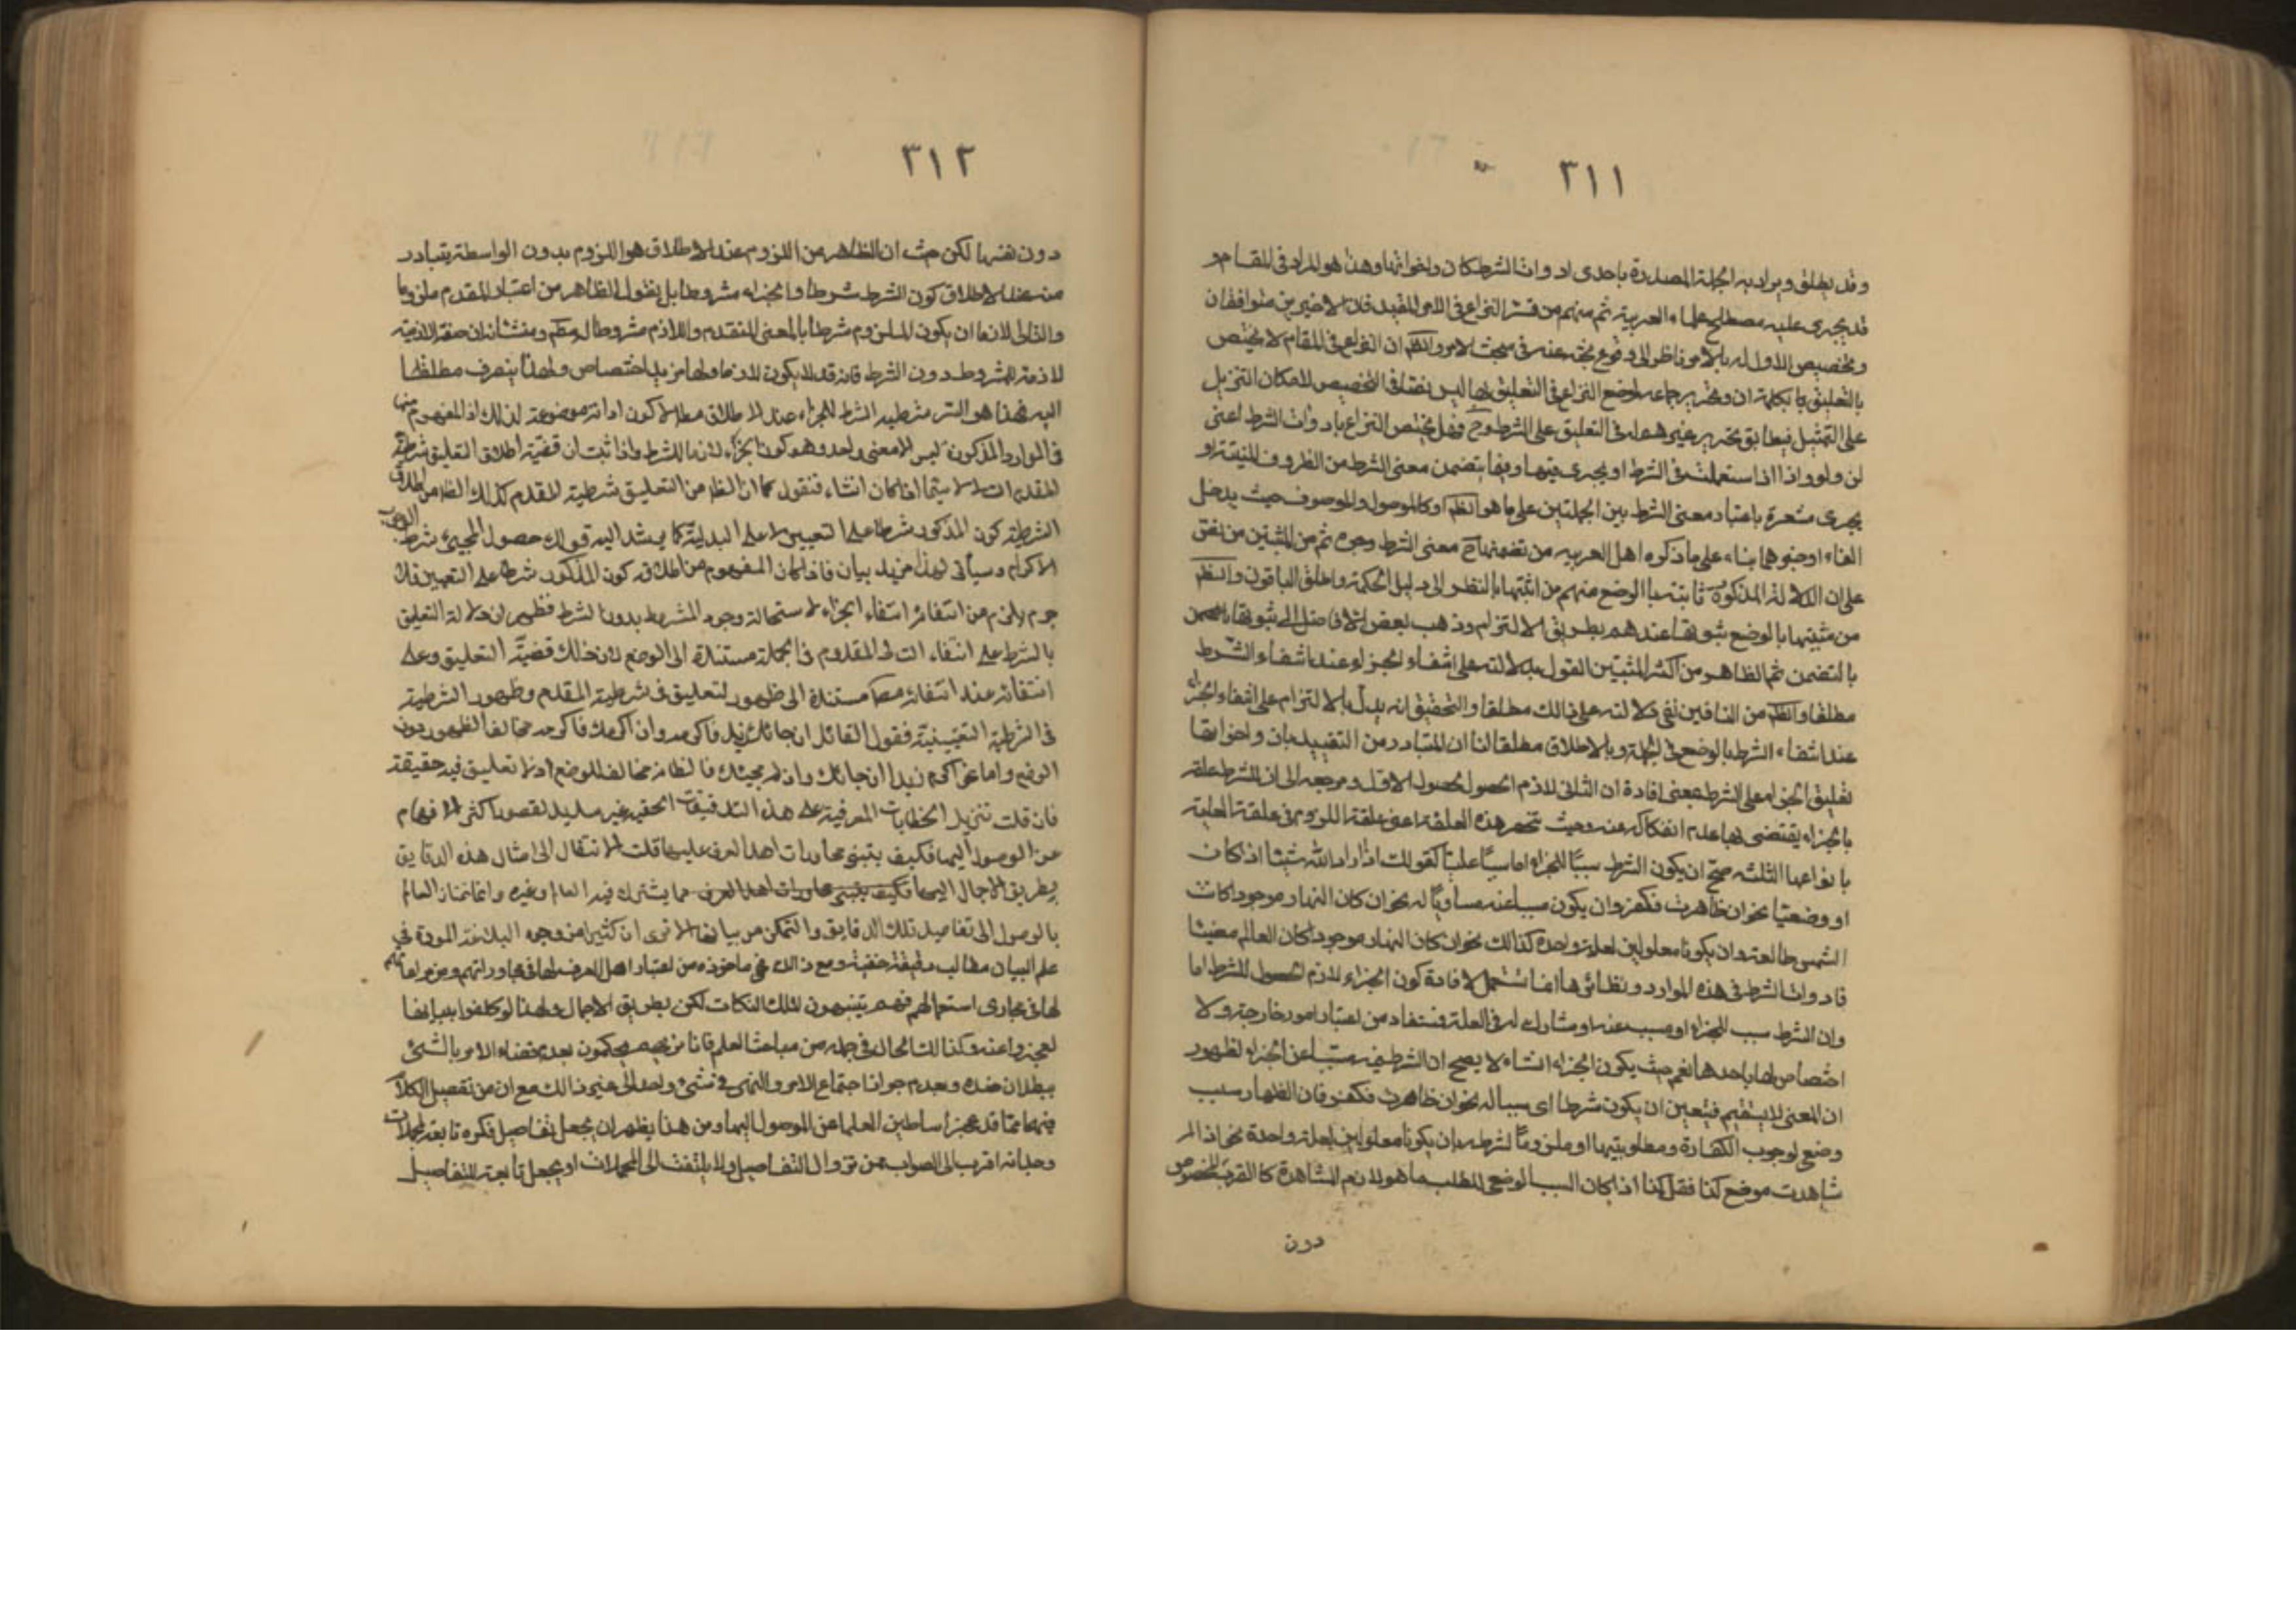 ٣١١
وقد يطلق ويراد به الجملة المصدرة باحدى ادوات الشرط كان واخواتها وهذا هو المراد فى المقام و
قد يجرى عليه مصطلح علماء العربية ثم منهم من فسر النزاع فى الامر المقيد فان الاخيرين متوافقان
وتخصيص الاول له بالامر ناظر الى وقوع بحثه عنه فى مبحث الامر والظ ان النزاع فى المقام لا يختص
بالتعليق بكلمة ان وتحرير جماعة لوضع النزاع فى التعليق بها ليس نصا فى التخصيص لامكان التنزيل
على التمثيل فيطابق تحرير غيرهم له فى التعليق على الشرط وح فهل يختص النزاع بادوات الشرط اعنى
ان ولو واذا اذا استعملت فى الشرط او يجرى فيها وفيما يتضمن معنى الشرط من الظروف المبنية او
يجرى مشعرة باعتبار معنى الشرط بين الجملتين على ما هو الظ او كالموصول والموصوف حيث يدخل
الفاء او خبرهما بناء على ما ذكره اهل العربيه من تضمنها ح معنى الشرط وجوه ثم من المثبتين من نص
على ان الدلالة المذكورة ثابتة بالوضع منهم من اثبتها بالنظر الى دليل الحكمة واطلق الباقون والظ
من مثبتيها بالوضع ثبوتها عندهم بطريق الالتزام وذهب بعض الافاضل الى ثبوتها بالتضمن
بالتضمن ثم الظاهر من اكثر المثبتين القول بدلالته على انتفاء الجزاء عند انتفاء الشرط
مطلقا والظ من النافين نفى دلالته على ذلك مطلقا والتحقيق انه يدل بالالتزام على انتفاء الجزاء
عند انتفاء الشرط بالوضع فى الجملة وبالاطلاق مطلقا لنا ان المتبادر من التقييد بان واخواتها
تعليق الجزاء على الشرط بمعنى افادة ان الثانى لازم الحصول لحصول الاول ومرجعه الى ان للشرط علقة
بالجزاء يقتضى بها عدم انفكاكه عنه وحيث تنحصر هذه العلقة اعنى علقة اللزوم فى علقة العلية
بانواعها الثلثة صح ان يكون الشرط سببا للجزاء اما سببا عليا كقولك اذا اراد الله شيئا اذا كان
او وضعيا نحو ان ظاهرت فكفر وان يكون مسببا عنه مساويا له نحو ان كان النهار موجودا كانت
الشمس طالعة وان يكونا معلولين لعلة واحدة كذلك نحو ان كان النهار موجودا كان العالم مضيئا
فادوات الشرط فى هذه الموارد ونظائرها انما تستعمل لافادة كون الجزاء لازم الحصول للشرط اما
وان الشرط سبب للجزاء او مسبب عنه او مشارك له فى العلة فتستفاد من اعتبار امور خارجة ولا
اختصاص لها باحدها نعم حيث يكون الجزاء انشاء لا يصح ان الشرط فيه مسببا عن الجزاء لظهور
ان المعنى لا يستقيم فيتعين ان يكون شرطا اى سببا له نحو ان ظاهرت فكفر فان الظهار سبب
وضعى لوجوب الكفارة ومطلوبيتها او ملزوما لشرطه بان يكونا معلولين لعلة واحدة نحو اذا لم
شاهدت موضع كذا فقل كذا اذا كان السبب الوضعى للطلب ما هو لازم المشاهدة كالقرب المخصوص
دون
٣١٢
دون نفسها لكن حيث ان الظاهر من اللزوم عند الاطلاق هو اللزوم بدون الواسطة يتبادر
منه عند الاطلاق كون الشرط شرطا والجزاء مشروطا بل نقول الظاهر من اعتبار المقدم ملزوما
والتالى لازما ان يكون الملزوم شرطا بالمعنى المتقدم واللازم مشروطا له مط ومنشأه ان صفة اللازمية
لازمة للمشروط دون الشرط فانه قد لا يكون لازما ولها مزيد اختصاص ولهذا ينصرف مطلقها
اليه فهذا هو السر شرطيه الشرط للجزاء عند الاطلاق مط لا كون اداته موضوعة لذلك اذ المفهوم منها
فى الموارد المذكورة ليس الا معنى واحد وهو كون الجزاء لازما للشرط واذا ثبت ان قضية اطلاق التعليق شرطية
المقدم للتالى لا سيما اذا كان انشاء فنقول كما ان الظ من التعليق شرطية المقدم كذلك الظ من اطلاق
الشرطية كون المذكور شرطا على التعيين لا على البدلية كما يرشد اليه قولك حصول المجيئ شرط لوجوب
الاكرام وسيأتى لهذا مزيد بيان فاذا كان المفهوم من اطلاقه كون المذكور شرطا على التعيين فلا
جرم يلزم من انتفائه انتفاء الجزاء لاستحالة وجود المشروط بدون الشرط فظهر ان دلالة التعليق
بالشرط على انتفاء التالى للمقدم فى الجملة مستندة الى الوضع لان ذلك قضية التعليق وعلى
انتفائه عند انتفائه مط مستندة الى ظهور التعليق فى شرطية المقدم وظهور الشرطية
فى الشرطية التعيينية فقول القائل ان جائك زيد فاكرمه وان اكرمك فاكرمه مخالف للظهور دون
الوضع واما نحو اكرم زيدا ان جائك وان لم يجيئك فالظاهر مخالف للوضع اذ لا تعليق فيه حقيقة
فان قلت تنزيل الخطابات العرفية على هذه التدقيقات الحقيقة غير سديد لقصور اكثر الافهام
عن الوصول اليها فكيف يبتنى محاورات اهل العرف عليها قلت الانتقال الى امثال هذه الدقايق
بطريق الاجمال اليها فكيف يبتنى محاورات اهل العرف مما يشترك فيه العالم وغيره وانما يمتاز العالم
بالوصول الى تفاصيل تلك الدقايق والتمكن من بيانها الا ترى ان كثيرا من وجوه البلاغة المودة فى
علم البيان مطالب دقيقة خفية ومع ذلك فهى ماخوذه من اعتبار اهل العرف لها فى محاوراتهم ومن مراعاتهم
لها فى مجارى استعمالهم فهم يتنبهون لتلك النكات لكن بطريق الاجمال ولهذا لو كلفوا ببيانها
لعجزوا عنه وكذلك الحال فى جملة من مباحث العلم فانا نريهم يحكمون بعدم قضاء الامر بالشئ
ببطلان ضده وبعدم جواز اجتماع الامر والنهى فى شئ واحد الى غير ذلك مع ان من تفصيل الكلام
فيها مما قد عجز اساطين العلماء عن الوصول اليها ومن هنا يظهر ان يجعل تفاصيل فكره تابعة لمجملات
وجدانه اقرب الى الصواب ممن تزوال التفاصيل ولا يلتفت الى المجملات او يجعل تابعة للتفاصيل